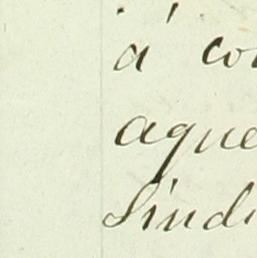 á co
aque
Sindi